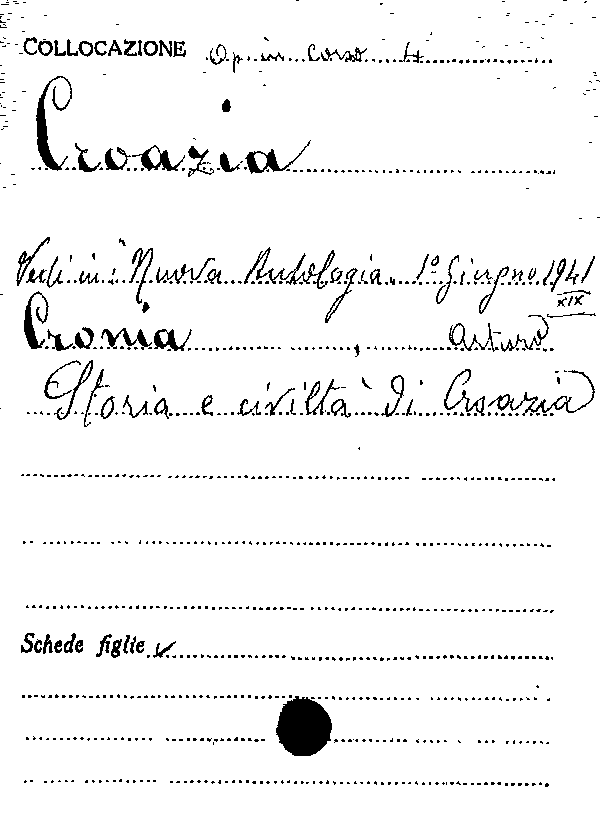 COLLOCAZIONE Op. in corso 4
Croazia
Vedi in: "Nuova Antologia. 1° Giugno 1941
XIX
Cronia, Arturo
Storia e civiltà di Croazia
Schede figlie